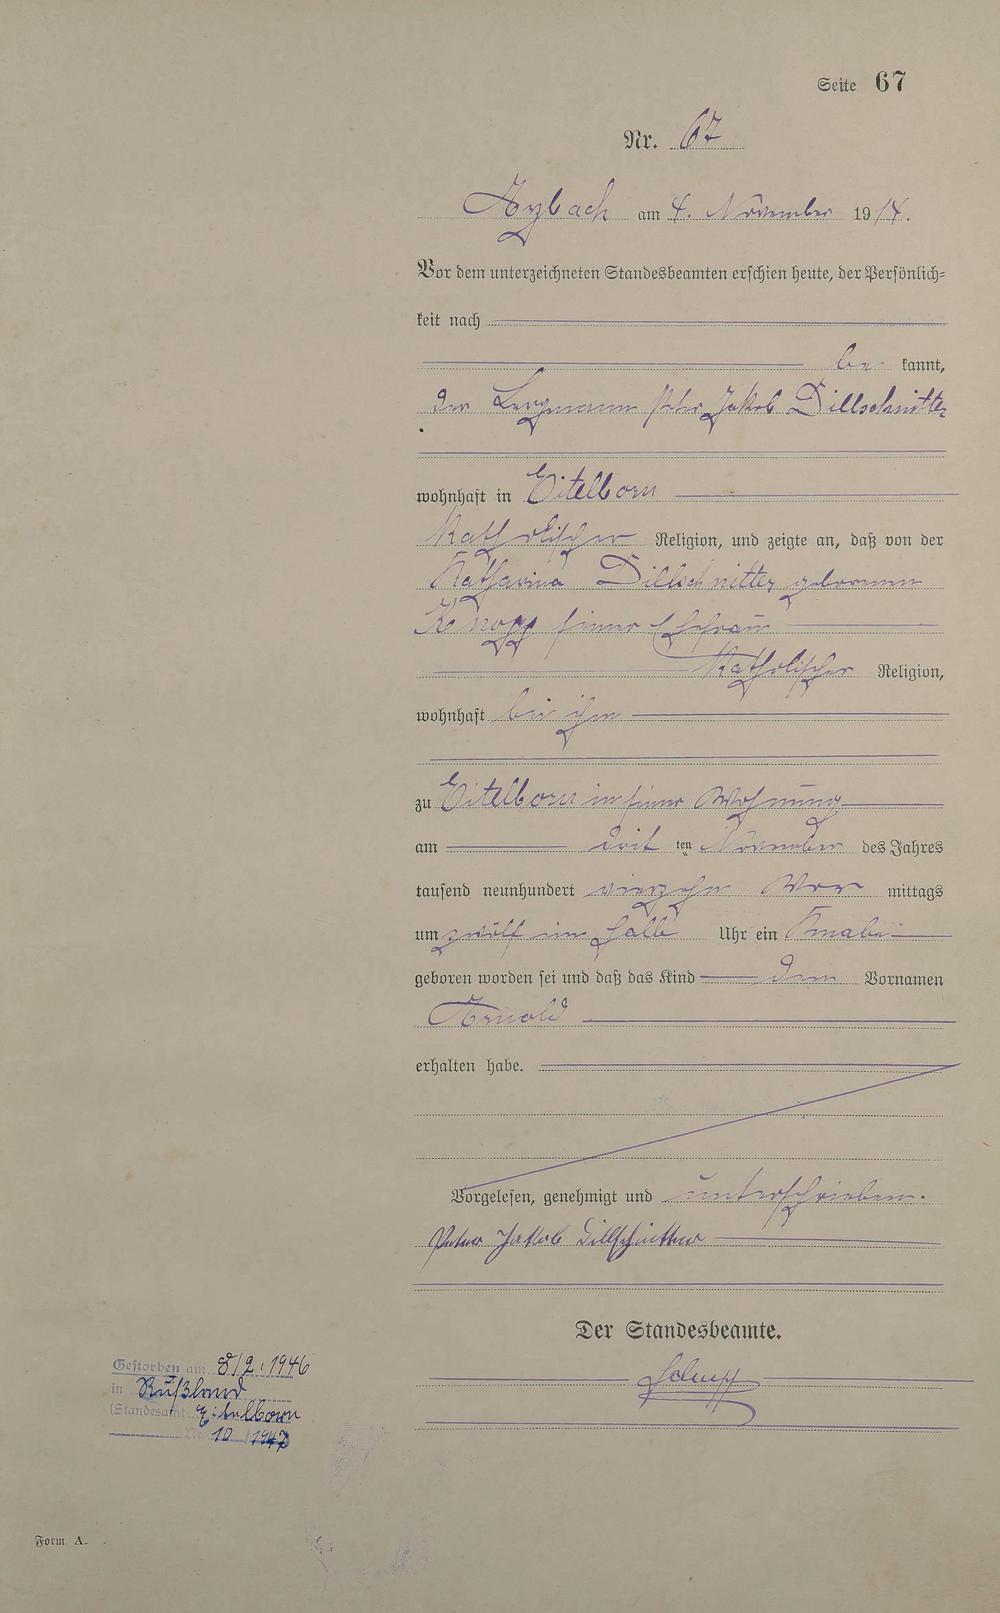 Seite 67
Nr. 67
Arzbach am 4. November 1914.
Vor dem unterzeichneten Standesbeamten erschien heute, der Persönlich=
keit nach
be kannt,
der Bergmann Peter Jakob Dillschnitter
wohnhaft in Eitelborn
katholischer Religion, und zeigte an, daß von der
Katharina Dillschnitter geborenen
Knopp seiner Ehefrau
katholischer Religion,
wohnhaft bei ihm
zu Eitelborn in seiner Wohnung
am drit ten November des Jahres
tausend neunhundert vierzehn Vor mittags
um zwölf ein halb Uhr ein Knabe
geboren worden sei und daß das Kind den Vornamen
Arnold
erhalten habe.
Vorgelesen, genehmigt und unterschrieben.
Peter Jakob Dillschnitter
Der Standesbeamte.
Gestorben am 8/2.1946
in Rußland
(Standesamt Eitelborn
Nr. 10 / 1947
Form A.